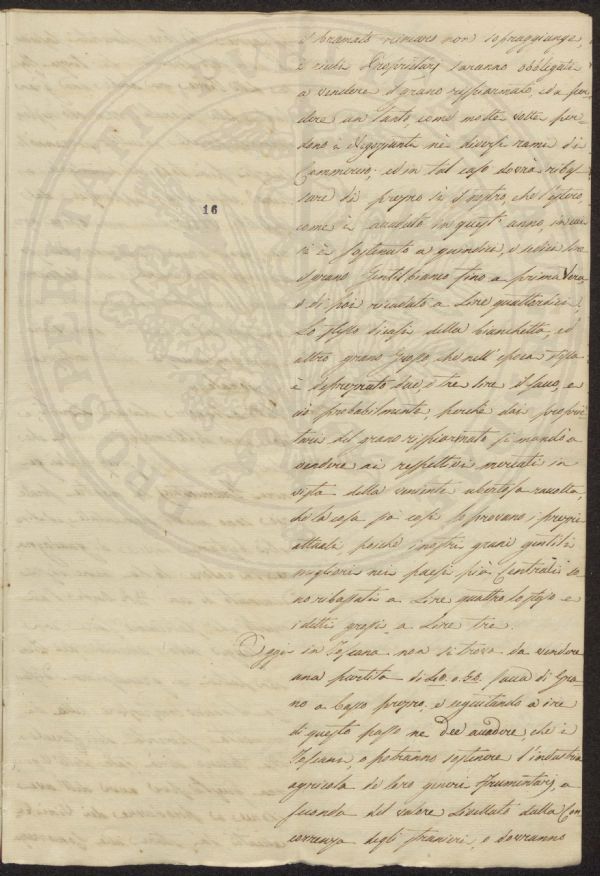 il bramato rincaro non sopraggiunge,
e ricchi Proprietarj saranno obbligati
a vendere il grano risparmiato, ed a per
dere un tanto come molte volte per
dono i Negozianti ne diversi rami di
Commercio; ed in tal caso dovrà ribas
sare di prezzo sì il nostro, che l'estero,
come è accaduto in quest'anno, in cui
16
si è sostenuto a quindici, e sedici lire
il grano Gentil bianco fino a prima Vera,
e di poi ricaduto a Lire quattordici;
Lo stesso dicasi della bianchetta, ed
altro grano Grosso, che nell'epoca stessa
è deprezzato due, o tre lire il sacco, e
ciò probabilmente, perchè dai proprie
tarii del grano risparmiato si mandò a
vendere ai respettivi mercati in
vista della veniente ubertosa raccolta,
se la cosa sia così lo provano i prezzi
attuali, poichè i nostri grani gentili
migliori nei paesi più Centrali so
no ribassati a Lire quattro lo stajo e
i detti grossi a Lire tre.
Oggi in Toscana non si trova da vendere
una partita di 40. o 50. sacca di Gra
no a basso prezzo, e seguitando a ire
di questo passo ne dee accadere, che i
Toscani, o potranno sostenere l'industria
agricola de loro generi frumentarj, a
seconda del valore Livellato dalla Con
correnza degli stranieri, o dovranno